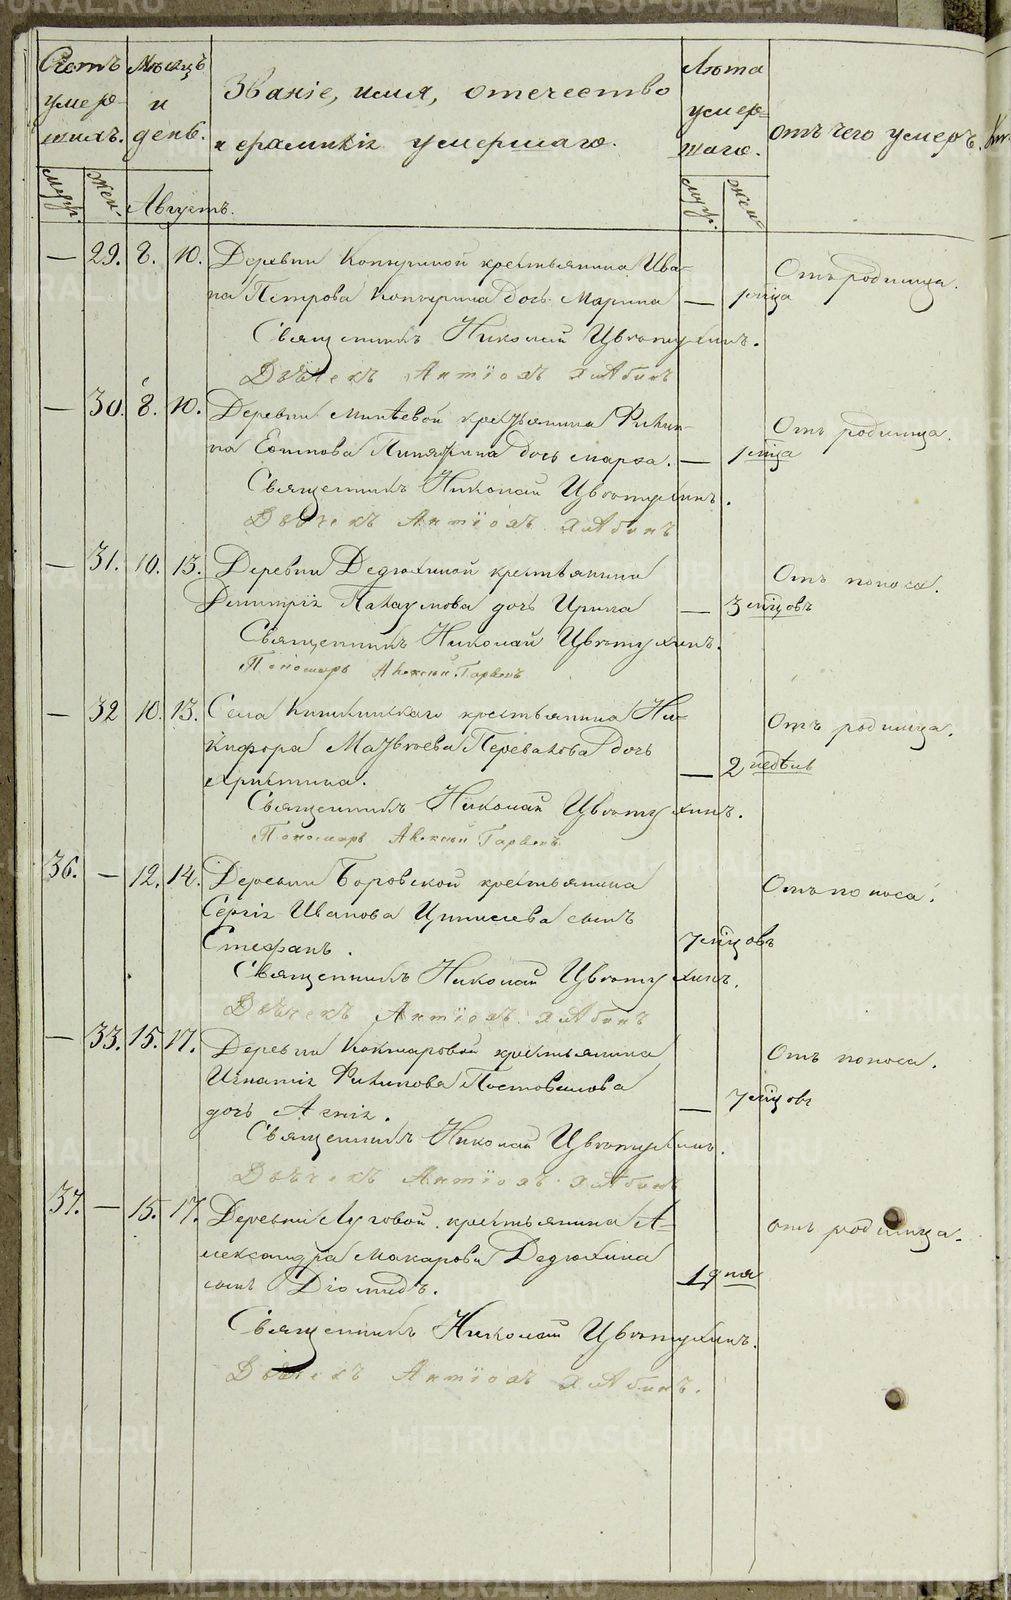 Счетъ умер- шихъ.
Мѣсяцъ и день.
Званіе, имя, отечество
и фамилія умершаго.
Лѣта умер- шаго.
отъ чего умеръ.
муж. жен. Августъ. муж. жен.
— 29. 8. 10. Деревни Копыриной крестьянина Ива-
на Петрова Копырина дочь Марина — 1 мѣсяца Отъ родимца.
Священникъ Николай Цвѣтухинъ.
Дьячекъ Антіохъ
— 30. 8. 10. Деревни Минѣевой крестьянина Филип-
па дочь Марѳа. — 1 мѣсяца Отъ родимца.
Священникъ Николай Цвѣтухинъ.
Дьячекъ Антіохъ
— 31. 10. 13. Деревни Дедюхиной крестьянина
Димитрія дочь Ирина — 3 мѣсяцовъ Отъ поноса.
Священникъ Николай Цвѣтухинъ.
Пономарь Алексѣй
— 32 10. 13. Села крестьянина Ни-
кифора Матвѣева Перевалова дочь
Христина. — 2 недѣль Отъ родимца.
Священникъ Николай Цвѣтухинъ.
Пономарь Алексѣй
36. — 12. 14. Деревни Боровской крестьянина
Сергія Иванова сынъ
Стефанъ. 7 мѣсяцовъ Отъ поноса.
Священникъ Николай Цвѣтухинъ.
Дьячекъ Антіохъ
— 33. 15. 17. Деревни крестьянина
Игнатія Филипова Постовалова
дочь Агнія. — 7 мѣсяцовъ Отъ поноса.
Священникъ Николай Цвѣтухинъ.
Дьячекъ Антіохъ
37. — 15. 17. Деревни Луговой крестьянина А-
лександра Макарова Дедюхина
сынъ Діомидъ. 1 дня отъ родимца.
Священникъ Николай Цвѣтухинъ.
Дьячекъ Антіохъ
METRIKI.GASO-URAL.RU